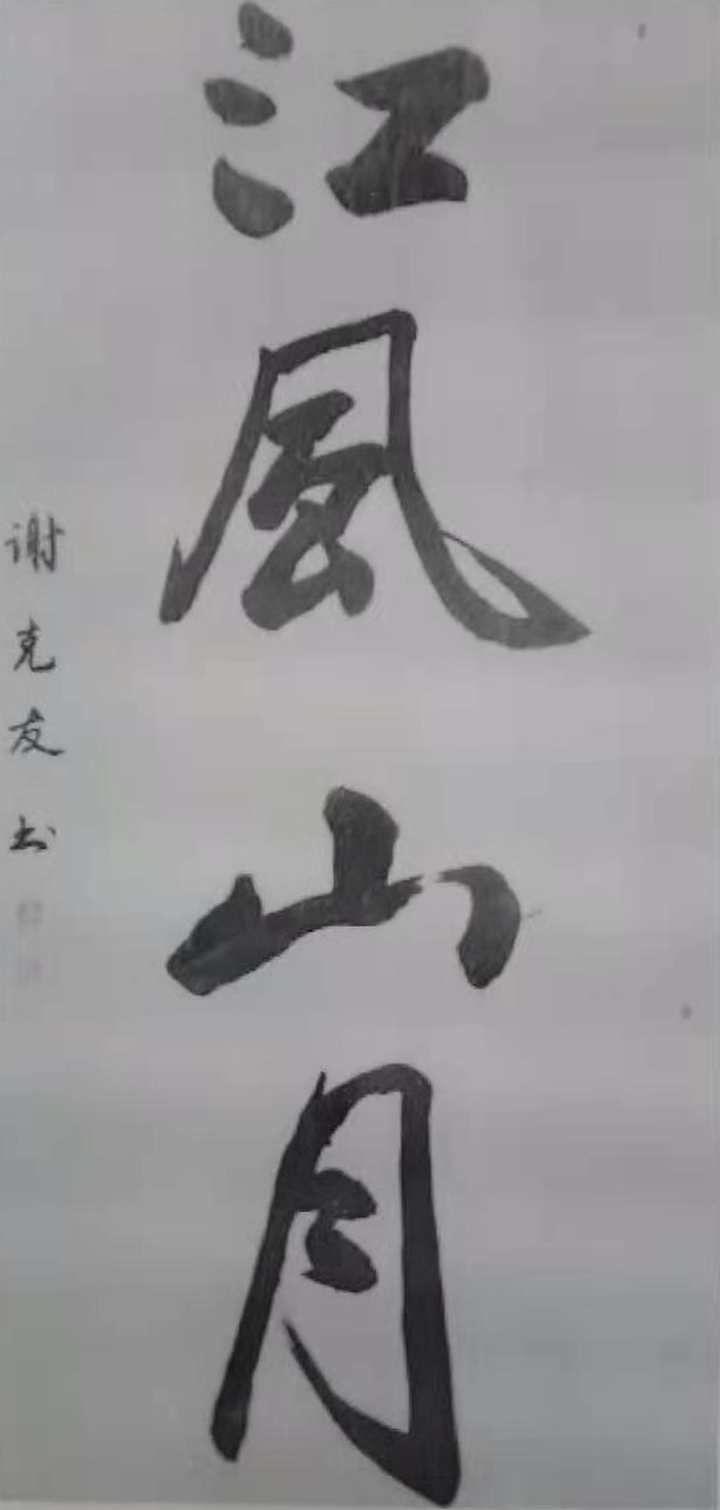 江風山月
谢克友书